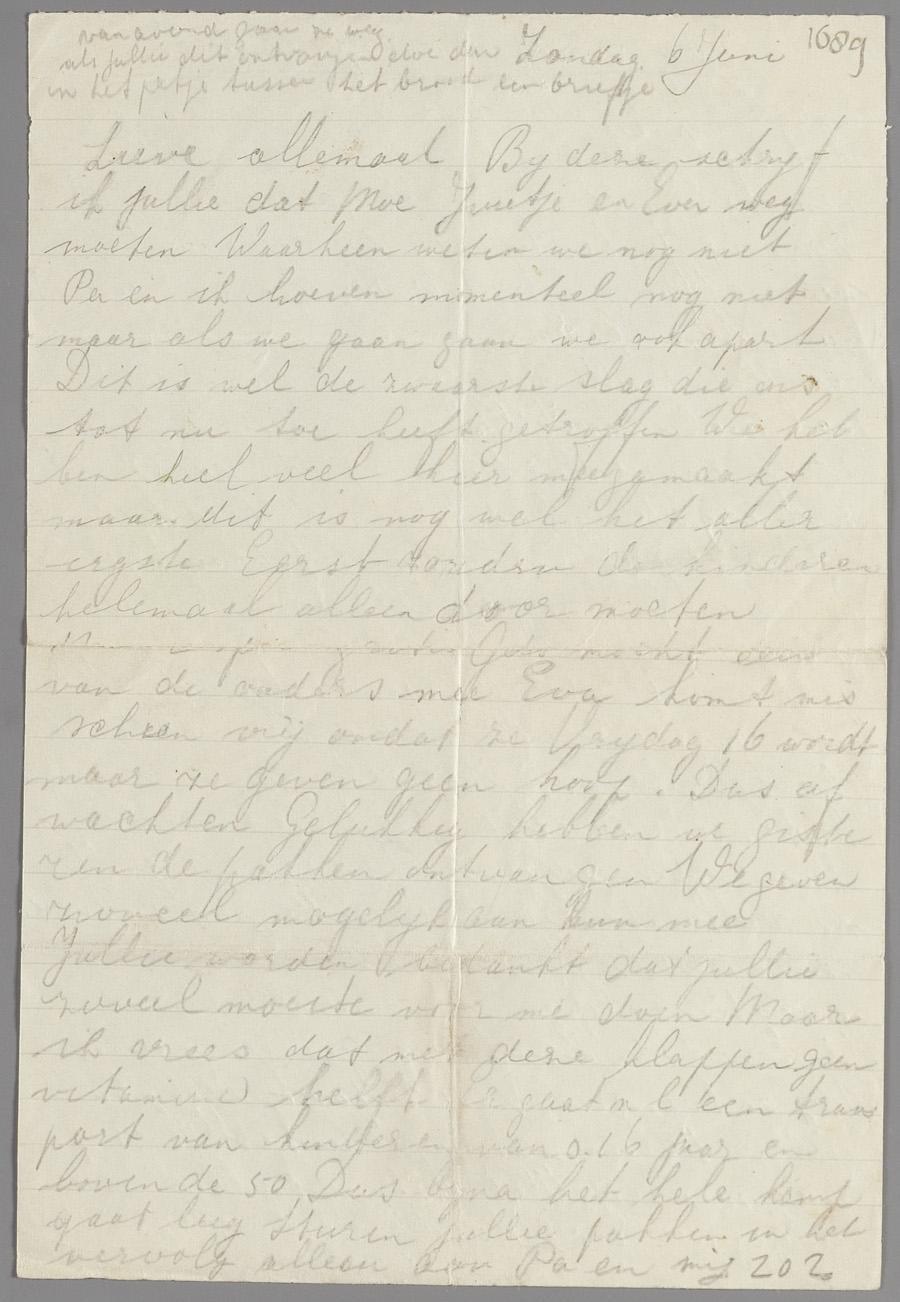 van avond gaan ze weg
als jullie dit ontvangen doe dan
in het petje tussen het brood een briefje
Zondag 6 Juni 1689
Lieve allemaal By deze schryf
ik jullie dat Moe Juetje en Ever weg
moeten Waarheen weten we nog niet
Pa en ik hoeven momenteel nog niet
maar als we gaan gaan we ook apart
Dit is wel de zwaarste slag die ons
tot nu toe heeft getroffen We heb
ben heel veel hier meegemaakt
maar dit is nog wel het aller
ergste Eerst zouden de kinderen
helemaal alleen door moeten
grote Gebr mocht een
van de ouders mee Eva komt mis
schien vrij omdat ze Vrydag 16 wordt
maar ze geven geen hoop. Dus af
wachten Gelukkig hebben we giste
ren de pakken ontvangen We geven
zoveel mogelijk aan hun mee
Jullie worden bedankt dat jullie
zoveel moeite voor me doen Maar
ik vrees dat met deze klappen geen
vitamine helpt Er gaat n l een trans
port van kinderen van 0.16 jaar en
boven de 50 Dus byna het hele kamp
gaat leeg Sturen jullie pakken in het
vervolg alleen aan Pa en mij 202